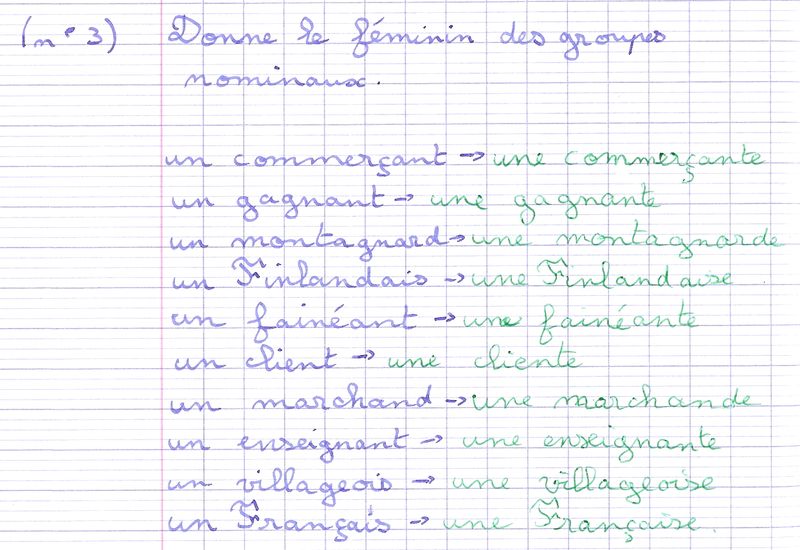 (n° 3) Donne le féminin des groupes
nominaux.
un commerçant → une commerçante
un gagnant → une gagnante
un montagnard → une montagnarde
un Finlandais → une Finlandaise.
un fainéant → une fainéante
un client → une cliente
un marchand → une marchande
un enseignant → une enseignante
un villageois → une villageoise
un Français → une Française.